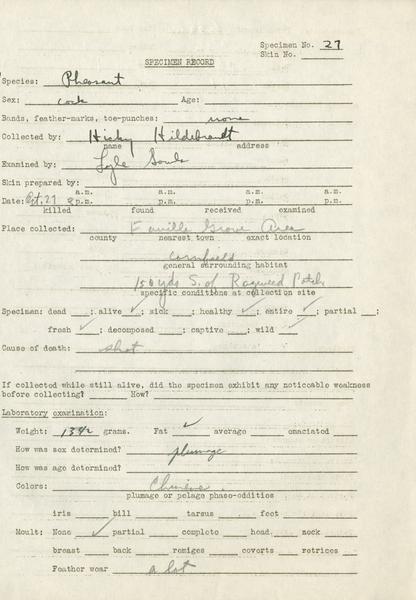 Specimen No. 27
Skin No.
SPECIMEN RECORD
Species: Pheasant
Sex: cock Age:
Bands, feather-marks, toe-punches: none
Collected by: Hicky Hildebrandt
name address
Examined by: Lyle Sowls
Skin prepared by:
a.m. a.m. a.m. a.m.
Date: Oct. 27 p.m. p.m. p.m. p.m.
killed found received examined
Place collected: Faville Grove Area
county nearest town exact location
cornfield
general surrounding habitat
150 yds S. of Ragweed Patch
specific conditions at collection site
Specimen: dead ; alive ✓ ; sick ; healthy ✓ ; entire ✓ ; partial ;
fresh ✓ ; decomposed ; captive ; wild ✓ ;
Cause of death: shot
If collected while still alive, did the specimen exhibit any noticeable weakness
before collecting? How?
Laboratory examination:
Weight: 1342 grams. Fat ✓ average emaciated
How was sex determined? plumage
How was age determined?
Colors: Chinese
plumage or pelage phase-oddities
iris bill tarsus feet
Moult: None ✓ partial complete head neck
breast back remiges coverts retrices
Feather wear a lot